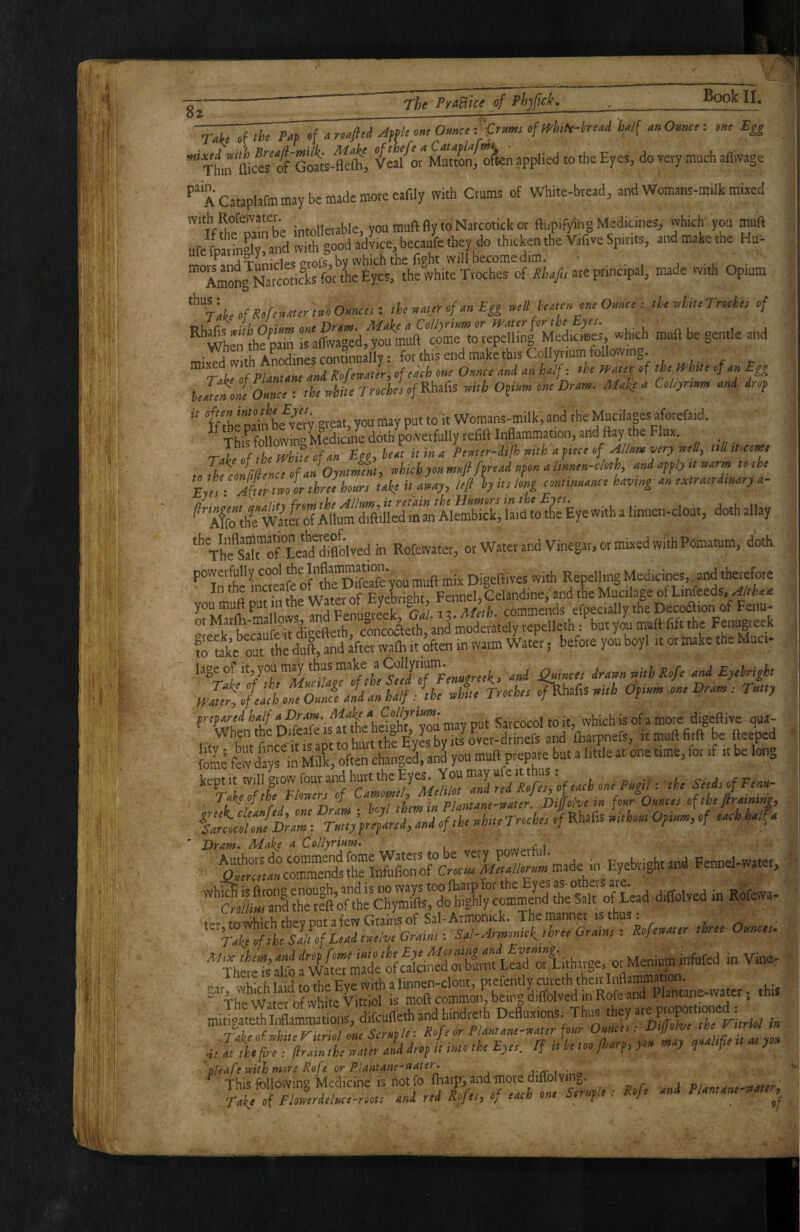 82 The Practice of Physick. Book II.
Take of the Pap of a roasted Apple one Ounce : Crums of White-bread half an Ounce : one Egg
mixed with Breast-milk. Make of these a Cataplasm.
Thin slices of Goats-flesh, Veal or Mutton, often applied to the Eyes, do very much asswage
pain.
A Cataplasm may be made more easily with Crums of White-bread, and Womans-milk mixed
with Rosewater.
If the pain be intollerable, you must fly to Narcotick or stupifying Medicines, which you must
use sparingly, and with good advice, because they do thicken the Visive Spirits, and make the Hu-
mors and Tunicles gross, by which the sight will become dim.
Among Narcoticks for the Eyes, the white Troches of Rhasis are principal, made with Opium
thus :
Take of Rosewater two Ounces : the water of an Egg well beaten one Ounce : the white Troches of
Rhasis with Opium one Dram. Make a Collyrium or Water for the Eyes.
When the pain is asswaged, you must come to repelling Medicines, which must be gentle and
mixed with Anodines continually : for this end make this Collyrium following.
Take of Plantane and Rosewater, of each one Ounce and an half : the Water of the White of an Egg
beaten one Ounce : the white Troches of Rhasis with Opium one Dram. Make a Collyrium and drop
it often into the Eyes.
If the pain be very great, you may put to it Womans-milk, and the Mucilages aforesaid.
This following Medicine doth powerfully resist Inflammation, and stay the Flux.
Take of the White of an Egg, beat it in a Pewter-dish with a piece of Allum very well, till it come
to the consistence of an Oyntment, which you must spread upon a linnen-cloth, and apply it warm to the
Eyes : After two or three hours take it away, lest by its long continuance having an extraordinary a-
stringent quality from the Allum, it retain the Humors in the Eyes.
Also the Water of Allum distilled in an Alembick, laid to the Eye with a linnen-clout, doth allay
the Inflammation thereof.
The Salt of Lead dissolved in Rosewater, or Water and Vinegar, or mixed with Pomatum, doth
powerfully cool the Inflammation.
In the increase of the Disease you must mix Digestives with Repelling Medicines, and therefore
you must put in the Water of Eyebright, Fennel, Celandine, and the Mucilage of Linseeds, Althæa
or Marsh-mallows, and Fenugreek, Gal. 13. Meth. commends especially the Decoction of Fenu-
greek, because it digesteth, concocteth, and moderately repelleth : but you must sift the Fenugreek
to take out the dust, and after wash it often in warm Water ; before you boyl it or make the Muci-
lage of it, you may thus make a Collyrium.
Take of the Mucilage of the Seed of Fenugreek, and Quinces drawn with Rose and Eyebright
Water, of each one Ounce and an half : the white Troches of Rhasis with Opium one Dram : Tutty
prepared half a Dram. Make a Collyrium.
When the Disease is at the height, you may put Sarcocol to it, which is of a more digestive qua-
lity : but since it is apt to hurt the Eyes by its over-driness and sharpness, it must first be steeped
some few days in Milk, often changed, and you must prepare but a little at one time, for if it be long
kept it will grow sour and hurt the Eyes. You may use it thus :
Take of the Flowers of Camomel, Melilot and red Roses, of each one Pugil : the Seeds of Fenu-
greek cleansed, one Dram ; boyl them in Plantane-water. Dissolve in four Ounces of the straining,
Sarcocol one Dram : Tutty prepared, and of the white Troches of Rhasis without Opium, of each half a
Dram. Make a Collyrium.
Authors do commend some Waters to be very powerful.
Quercetan commends the Infusion of Crocus Metallorum made in Eyebright and Fennel-water,
which is strong enough, and is no ways too sharp for the Eyes as others are.
Crollius and the rest of the Chymists, do highly commend the Salt of Lead dissolved in Rosewa-
ter, to which they put a few Grains of Sal-Armonick. The manner is thus :
Take of the Salt of Lead twelve Grains : Sal-Armonick three Grains : Rosewater three Ounces.
Mix them, and drop some into the Eye Morning and Evening.
There is also a Water made of calcined or burnt Lead or Litharge, or Menium infused in Vine-
gar, which laid to the Eye with a linnen-clout, presently cureth their Inflammation.
The Water of white Vitriol is most common, being dissolved in Rose and Plantane-water ; this
mitigateth Inflammations, discusseth and hindreth Defluxions. Thus they are proportioned :
Take of white Vitriol one Scruple : Rose or Plantane-water four Ounces : Dissolve the Vitriol in
it at the fire : strain the water and drop it into the Eyes. If it be too sharp, you may qualifie it as you
please with more Rose or Plantane-water.
This following Medicine is not so sharp, and more dissolving.
Take of Flowerdeluce-roots and red Roses, of each one Scruple : Rose and Plantane-water,
of